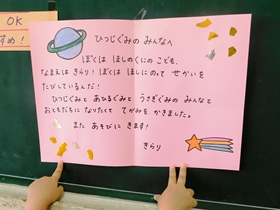 OK
すめ!
ひつじぐみの みんなへ
ぼくは ほしのくにの こども、
なまえは きらり！ぼくは ほしにのって せかいを
たびしているんだ！
ひつじぐみと あひるぐみと うさぎぐみの みんなと
おともだちに なりたくて てがみを かきました。
また あそびに きます！
きらり